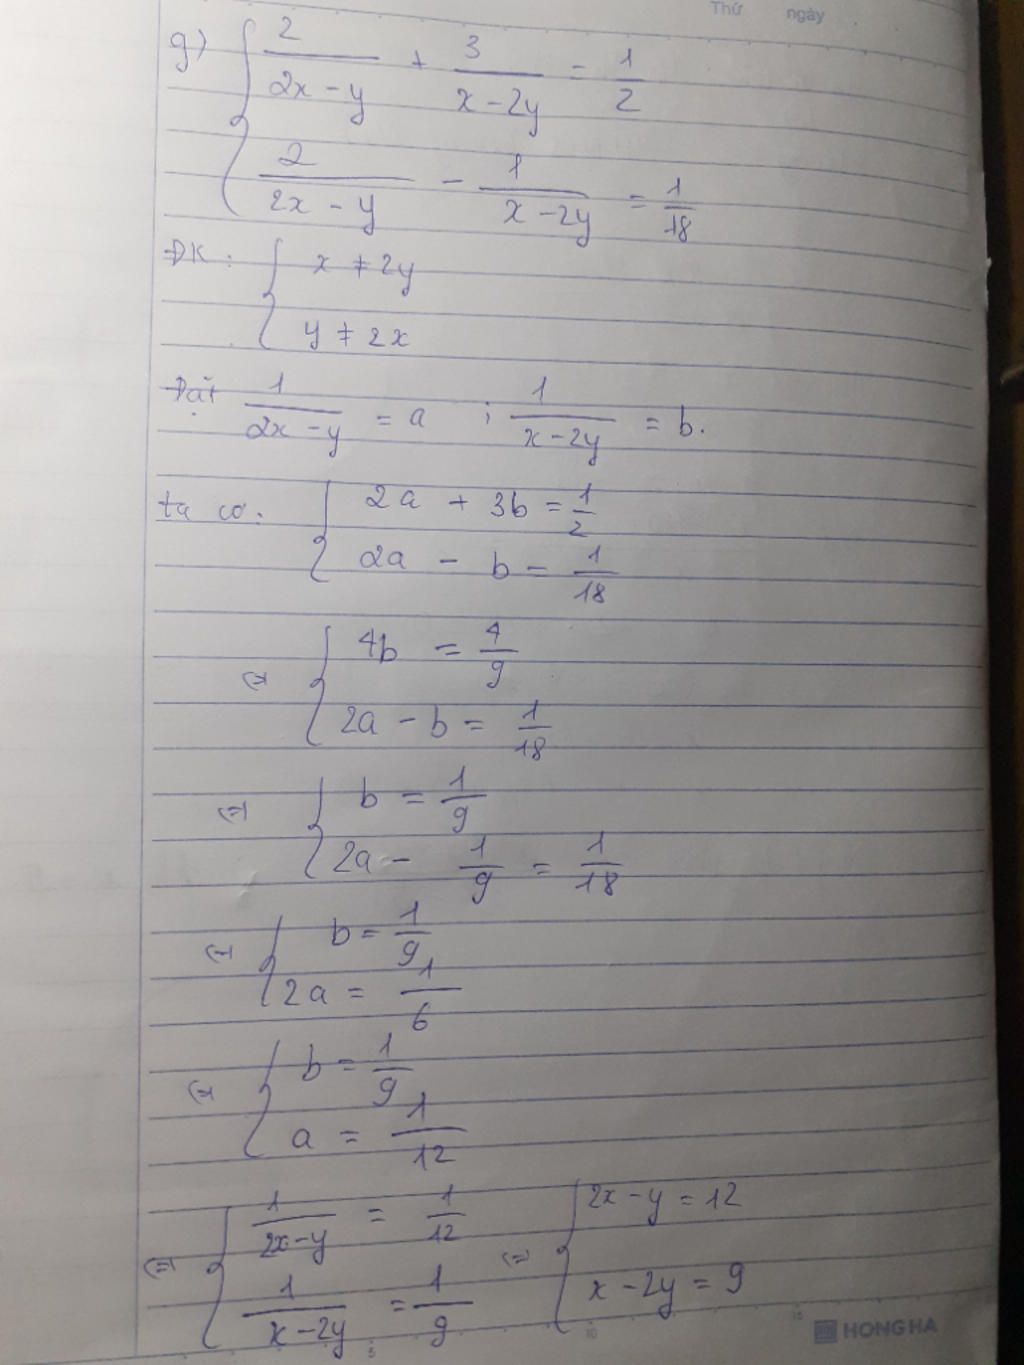 Thứ ngày
g) { 2/(2x - y) + 3/(x - 2y) = 1/2
2/(2x - y) - 1/(x - 2y) = 1/18
ĐK: { x ≠ 2y
y ≠ 2x
Đặt 1/(2x - y) = a ; 1/(x - 2y) = b.
ta có: { 2a + 3b = 1/2
2a - b = 1/18
⇔ { 4b = 4/9
2a - b = 1/18
⇔ { b = 1/9
2a - 1/9 = 1/18
⇔ { b = 1/9
2a = 1/6
⇔ { b = 1/9
a = 1/12
⇔ { 1/(2x - y) = 1/12 ⇔ { 2x - y = 12
1/(x - 2y) = 1/9 x - 2y = 9
5 10 15
HONG HA